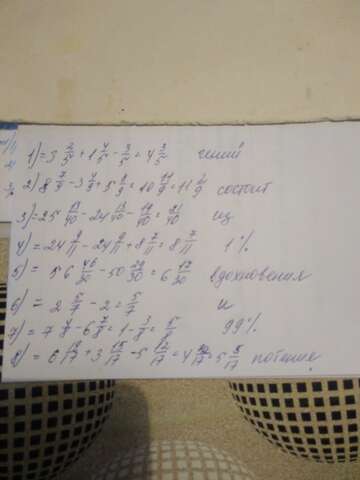 1) = 3 2/5 + 1 4/5 - 3/5 = 4 3/5 гений
2) 8 7/9 - 3 4/9 + 5 8/9 = 10 11/9 = 11 2/9 состоит
3) = 25 - 24 = 21/40 из
4) = 24 9/11 - 24 9/11 + 8 7/11 = 8 7/11 1%
5) = 56 46/30 - 50 29/30 = 6 17/30 вдохновения
6) = 2 5/7 - 2 = 5/7 и
7) = 7 - 6 = 1 - 3/8 = 5/8 99%
8) = 6 + 3 15/17 - 5 12/17 = 4 = 5 5/17 потения